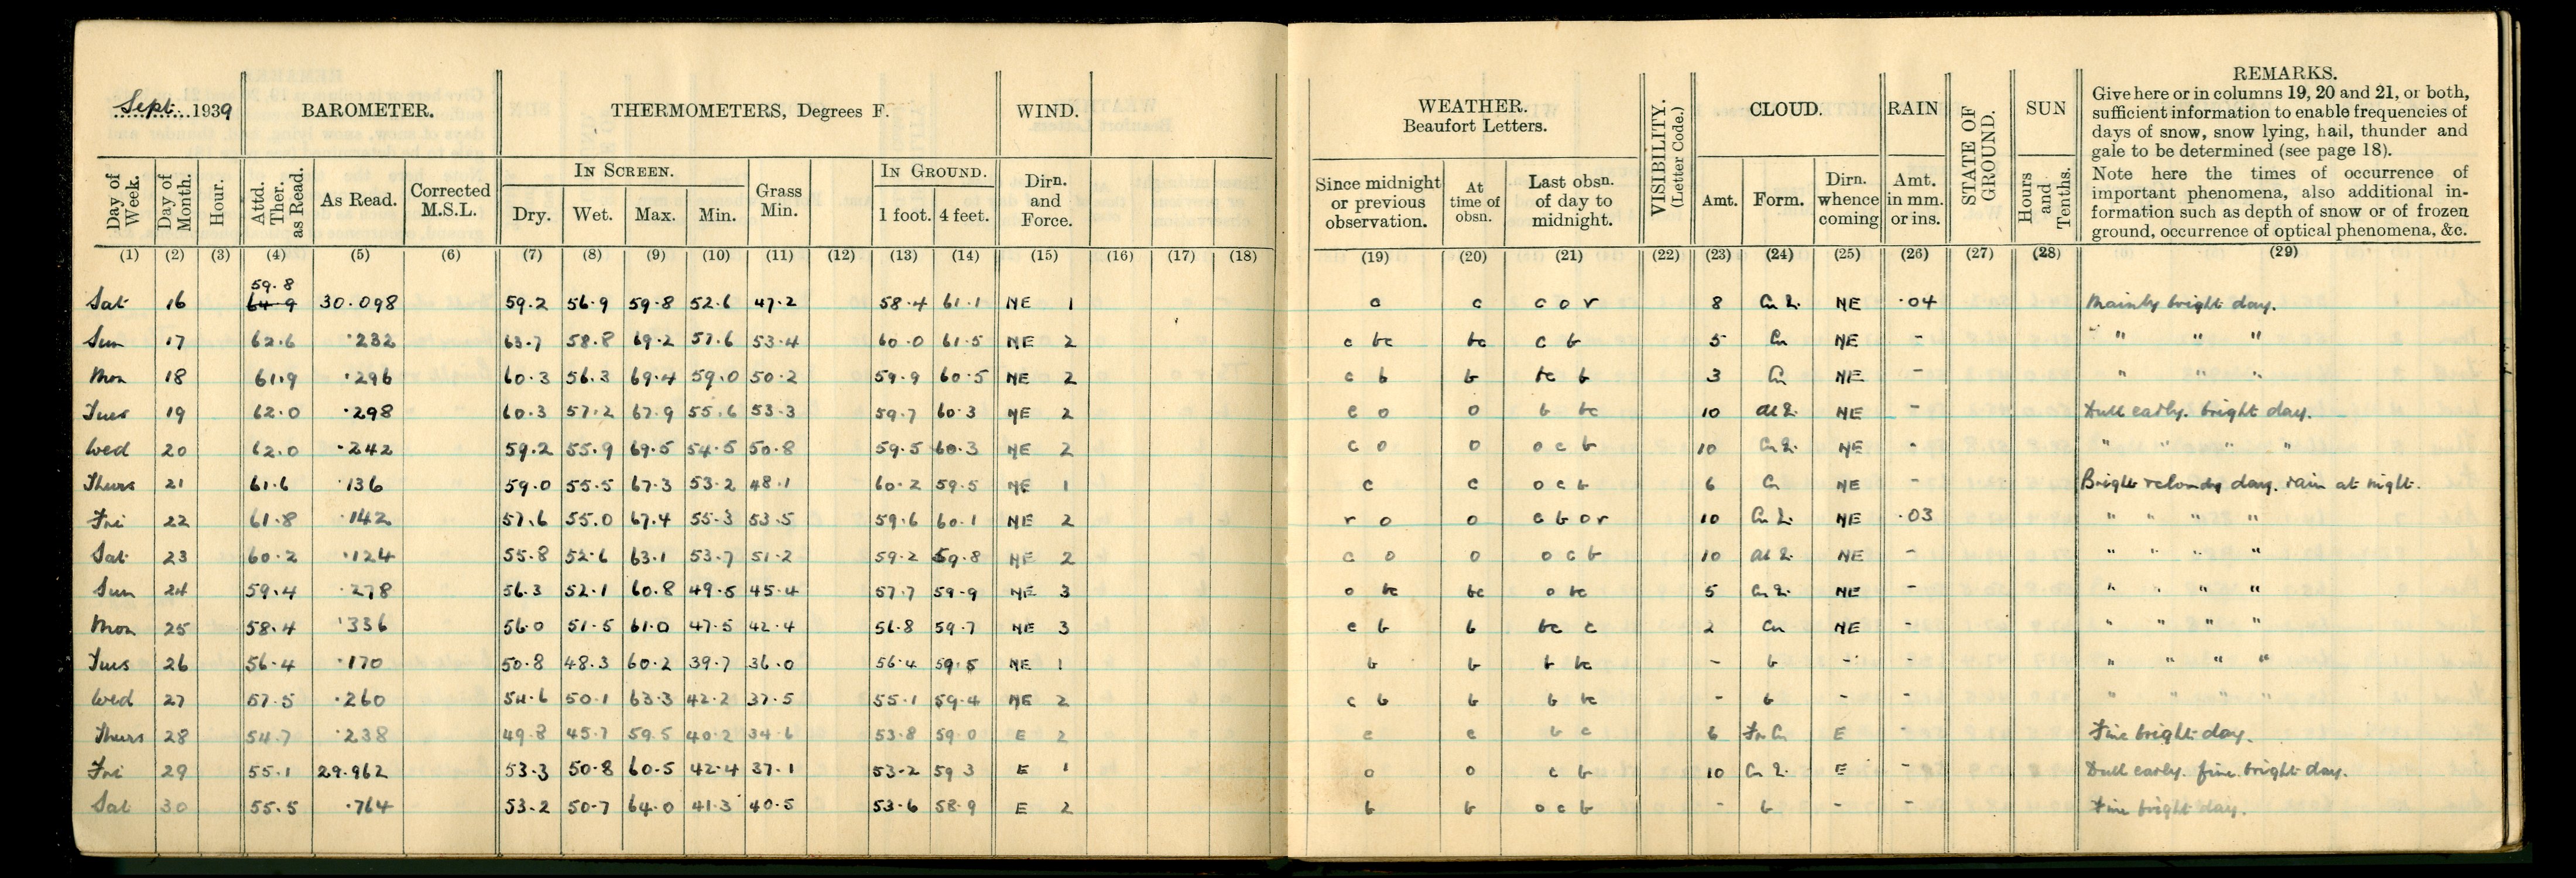 Sept. 1939
BAROMETER.
THERMOMETERS, Degrees F.
WIND.
WEATHER.
Beaufort Letters.
VISIBILITY.
(Letter Code.)
CLOUD.
RAIN
STATE OF
GROUND.
SUN
REMARKS.
Give here or in columns 19, 20 and 21, or both,
sufficient information to enable frequencies of
days of snow, snow lying, hail, thunder and
gale to be determined (see page 18).
Note here the times of occurrence of
important phenomena, also additional in-
formation such as depth of snow or of frozen
ground, occurrence of optical phenomena, &c.
Day of
Week.
Day of
Month.
Hour.
Attd.
Ther.
as Read.
As Read.
Corrected
M.S.L.
IN SCREEN.
Dry.
Wet.
Max.
Min.
Grass
Min.
IN GROUND.
1 foot.
4 feet.
Dirn.
and
Force.
Since midnight
or previous
observation.
At
time of
obsn.
Last obsn.
of day to
midnight.
Amt.
Form.
Dirn.
whence
coming
Amt.
in mm.
or ins.
Hours
and
Tenths.
(1) (2) (3) (4) (5) (6) (7) (8) (9) (10) (11) (12) (13) (14) (15) (16) (17) (18) (19) (20) (21) (22) (23) (24) (25) (26) (27) (28) (29)
59.8
Sat 16 64.9 30.098 59.2 56.9 59.8 52.6 47.2 58.4 61.1 NE 1 c c c o r 8 Cu L. NE .04 Mainly bright day.
Sun 17 62.6 .232 63.7 58.8 69.2 57.6 53.4 60.0 61.5 NE 2 c bc bc c b 5 Cu NE - " " "
Mon 18 61.9 .296 60.3 56.3 69.4 59.0 50.2 59.9 60.5 NE 2 c b b bc b 3 Cu NE - " " "
Tues 19 62.0 .298 60.3 57.2 67.9 55.6 53.3 59.7 60.3 NE 2 c o o b bc 10 NE - Dull early. bright day.
Wed 20 62.0 .242 59.2 55.9 69.5 54.5 50.8 59.5 60.3 NE 2 c o o o c b 10 Cu L. NE - " " " "
Thurs 21 61.6 .136 59.0 55.5 67.3 53.2 48.1 60.2 59.5 NE 1 c c o c b 6 Cu NE - Bright day. rain at night.
Fri 22 61.8 .142 57.6 55.0 67.4 55.3 53.5 59.6 60.1 NE 2 r o o c b o r 10 Cu L. NE .03 " " " "
Sat 23 60.2 .124 55.8 52.6 63.1 53.7 51.2 59.2 59.8 NE 2 c o o o c b 10 NE - " " " "
Sun 24 59.4 .278 56.3 52.1 60.8 49.5 45.4 57.7 59.9 NE 3 o bc bc o bc 5 Cu L. NE - " " " "
Mon 25 58.4 .336 56.0 51.5 61.0 47.5 42.4 56.8 59.7 NE 3 c b b bc c 2 Cu NE - " " " "
Tues 26 56.4 .170 50.8 48.3 60.2 39.7 36.0 56.4 59.5 NE 1 b b b bc - b - - " " " "
Wed 27 57.5 .260 54.6 50.1 63.3 42.2 37.5 55.1 59.4 NE 2 c b b b bc - b - - " " " "
Thurs 28 54.7 .238 49.8 45.7 59.5 40.2 34.6 53.8 59.0 E 2 c c b c 6 Fr Cu E - Fine bright day.
Fri 29 55.1 29.962 53.3 50.8 60.5 42.4 37.1 53.2 59.3 E 1 o o c b 10 Cu L. E - Dull early. fine bright day.
Sat 30 55.5 .764 53.2 50.7 64.0 41.3 40.5 53.6 58.9 E 2 b b o c b - b - - Fine bright day.